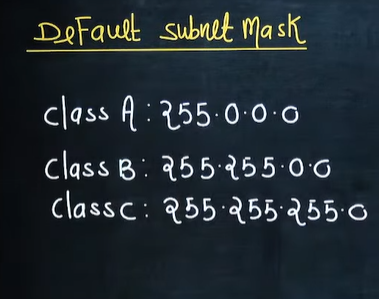 Default subnet Mask
class A : 255.0.0.0
Class B : 255.255.0.0
Class C : 255.255.255.0